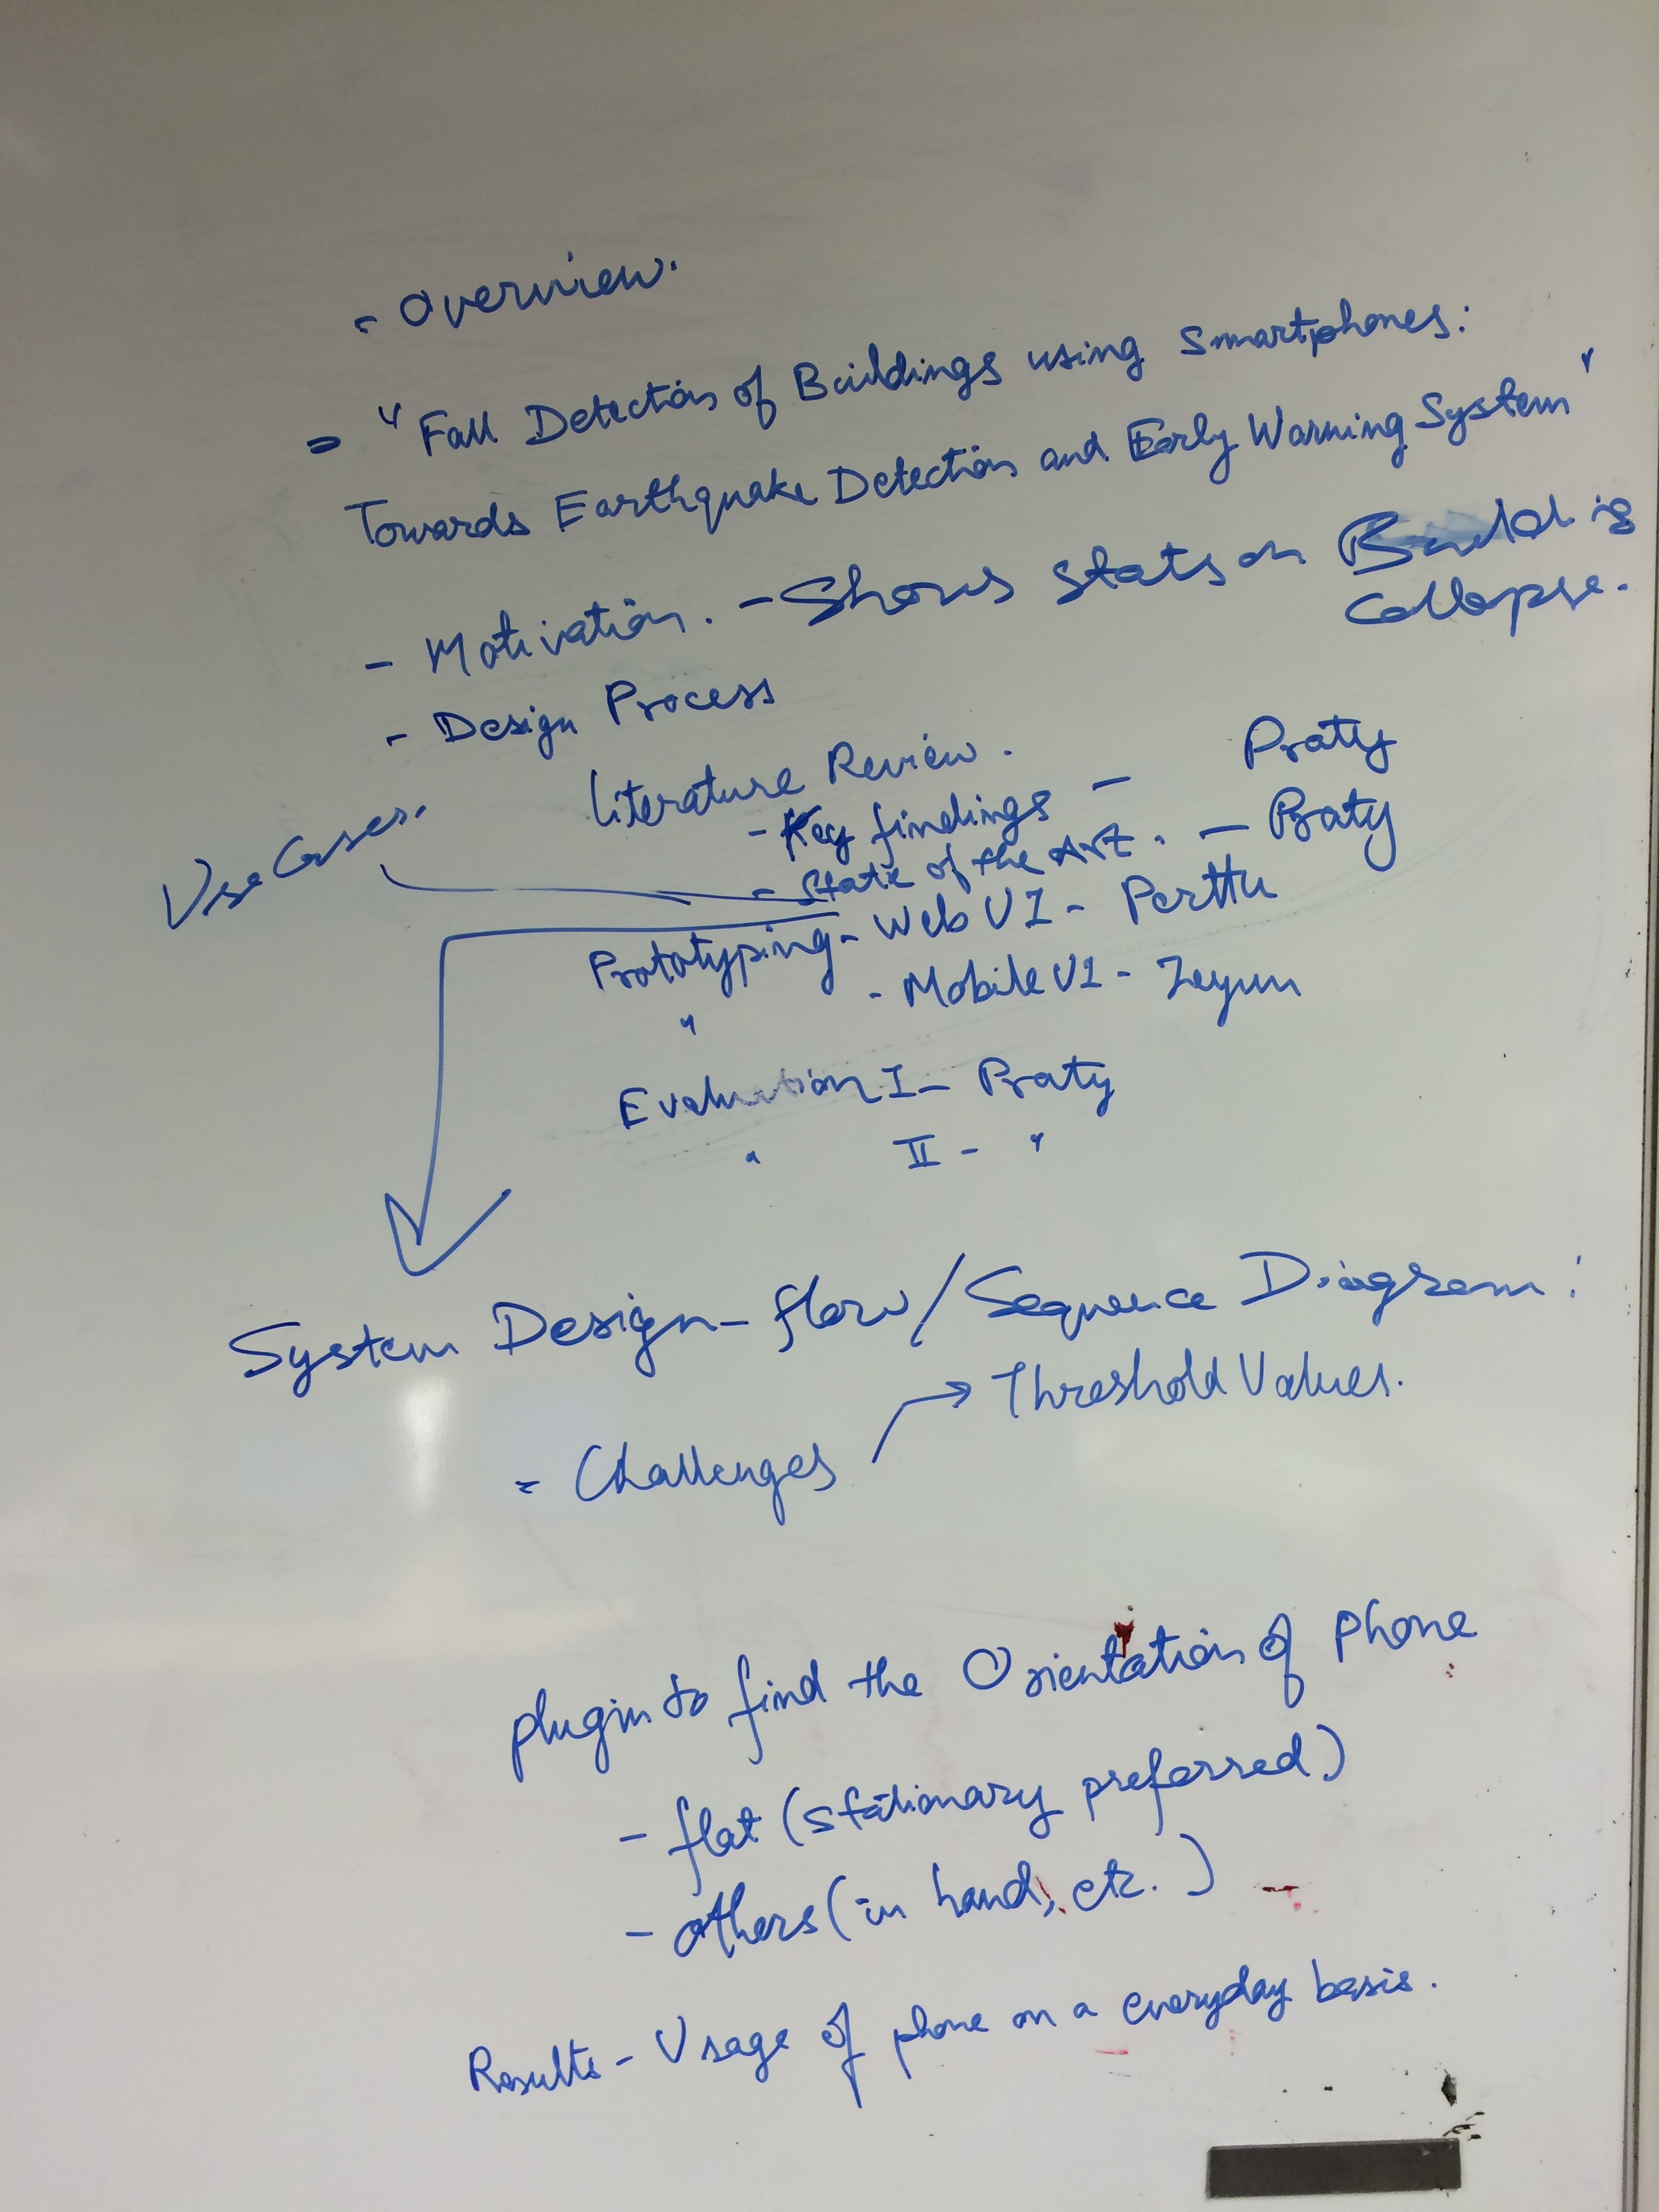 - Overview.
- "Fall Detection of Buildings using Smartphones:
Towards Earthquake Detection and Early Warning System"
- Motivation. - Shows stats on Building
collapse.
- Design Process
Literature Review.
- Key findings - Praty
- State of the Art. - Praty
Use Cases.
Prototyping - Web V1 - Perttu
" - Mobile V1 - Zeyun
Evaluation I - Praty
" II - "
System Design - flow/Sequence Diagram:
- Challenges → Threshold Values.
plugin to find the Orientation of phone
- flat (stationary preferred)
- others (in hand, etc.)
Results - Usage of phone on a everyday basis.